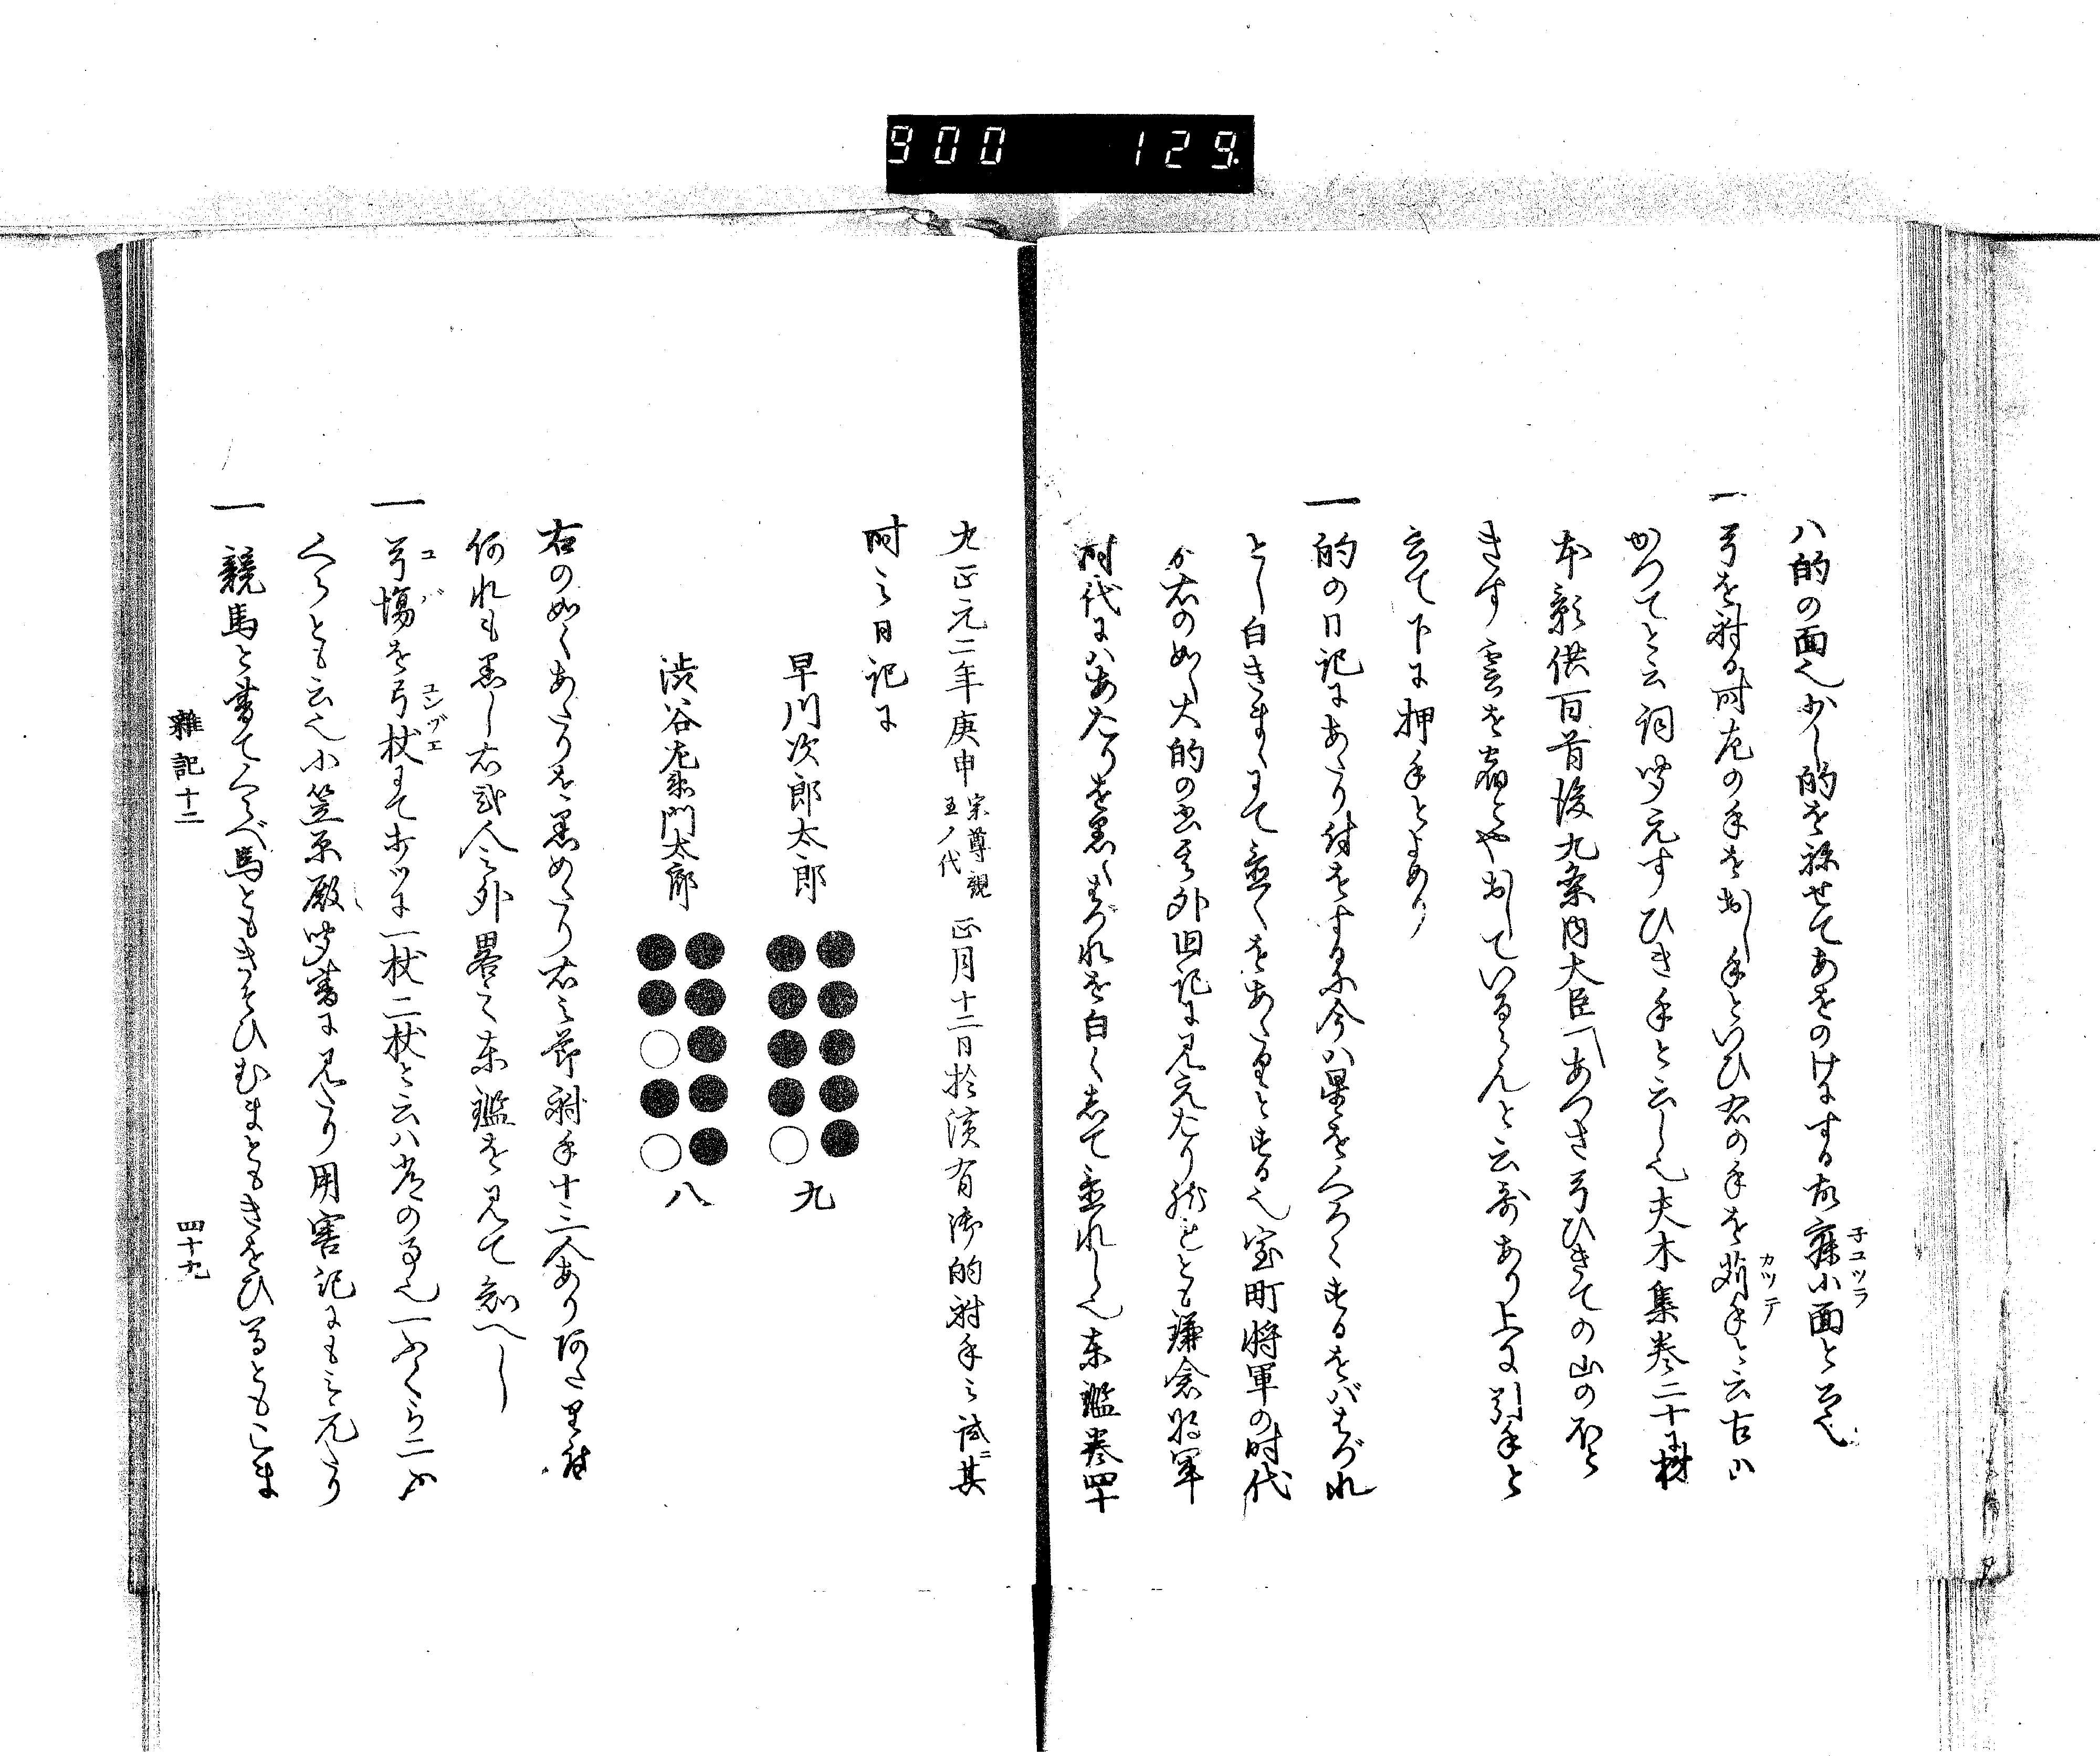 900 129.
ハ的の面也少し的を祢せてあをのけにする故寐小面と云也
子コツラ
一弓を射る時左の手を出し手といひ右の手を苅手と云古ハ
カツテ
かつてと云詞聞元すひき手と云し也夫木集巻二十に樹
本影供百首後九条内大臣あつさ弓ひきての山の
きす雲を やおしているらんと云哥あり上に引手と
云て下に押手とよめり
一的の日記にあたり付をするに今ハ星をくろくするをバはづれ
とし白きまゝにて置くをあたりとする也室町将軍の時代
か右の如く大的の 其外旧記に見元たり然とも鎌倉将軍
時代にハあたりを黒くはづれを白くして置れし也東鑑巻四十
九正元二年庚申宗尊親王ノ代正月十二日於濱有御的射手之試ニ其
時之日記に
早川次郎太郎 九
渋谷左衛門太郎 八
右の如くあたりを黒めたり右之節射手十三人あり何た里付
何れも黒し右弐人之外畧之東鑑を見て知へし
一弓場を弓杖にて打ツに一杖二杖と云ハ常の事也一ふくら二ふ
コバ ユンヅエ
くらとも云也小笠原殿聞書に見たり用害記にも三元たり
一競馬と書てくらべ馬ともきそひむまともきをひ馬ともこま
雜記十二 四十九